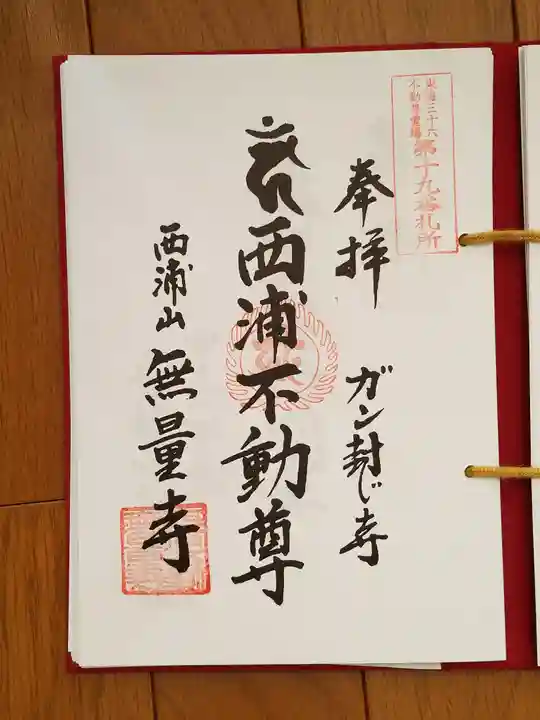 東海三十六
不動尊霊場
第十九番札所
奉拝
ガン封じ寺
西浦不動尊
西浦山
無量寺